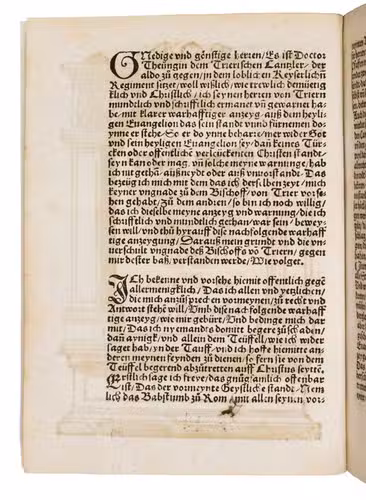 Gnedige vnd gönstige herren/ Es ist Doctor
Theüngin dem Trierischen Cantzler/ der
aldo zů gegen/ in dem loblichen Keyserlichñ
Regiment sitzet/ woll wißlich/ wie trewlich demüetig
klich vnd Christlich/ ich seynen herren von Triern
mundtlich vnd schrifftlich ermanet vñ gewarnet ha
be/ mit klarer warhafftiger anzeyg/ auß dem heyli
gen Euangelion das sein stande vnnd fürnemen do
ynne er stehe/ So er do ynne beharre/ mer wider Got
vnd sein heyligen Euangelion sey/ dañ keines Tür
cken oder öffentliche verleückenten Christen stande
seyn kan oder mag. vñ solche meyne warnünge/ hab
ich nit gethã/ auß neydt oder auß vnuorstant. Das
bezeüg ich mich mit dem das ich derselben zeyt/ mich
keyner vngnade zů dem Bischoff/ von Trier vorse
hen gehabt/ zů dem andren/ so bin ich noch willig/
das ich dieselbe meyne anzeyg vnd warnung/ die ich
schrifftlich vnd mündtlich gethan/ war sein/ bewey
sen will/ vnd thů hyrauff dise nachfolgende warhaff
tige anzeygung/ Darauß mein grundt vnd die vn
uerschult vngnade deß Bischoffs võ Triern/ gegen
mir dester baß verstanden werde/ Wie volget.
ICh bekenne vnd vorsehe hiemit offentlich gegẽ
allermenigklich/ Das ich allen vnd yetzlichen/
die mich anzůsprechen vormeynen/ zů recht vnd
Antwort stehẽ will/ Vmb disen nachfolgende warhaff
tige anzeyg/ wie mir gebürt/ Vnd bedinge mich dar
mit/ Das ich nyemandts domitt begere zů schaden/
dañ aynigk/ vnd allein dem Teüffel/ wie ich wider
saget hab/ in der Tauff/ vñ ich hoffe hiemitte an
deren meynen feynden zů dienen so fern sie von dem
Teüffel begerend abzůtretten auff Christus seytẽ,
Erstlich sage ich freye/ das gnůgsamlich offenbar
ist/ Das der vormeynte Geystliche stande/ Nem
lich das Babstumb zů Rom mit allen seynen vor-